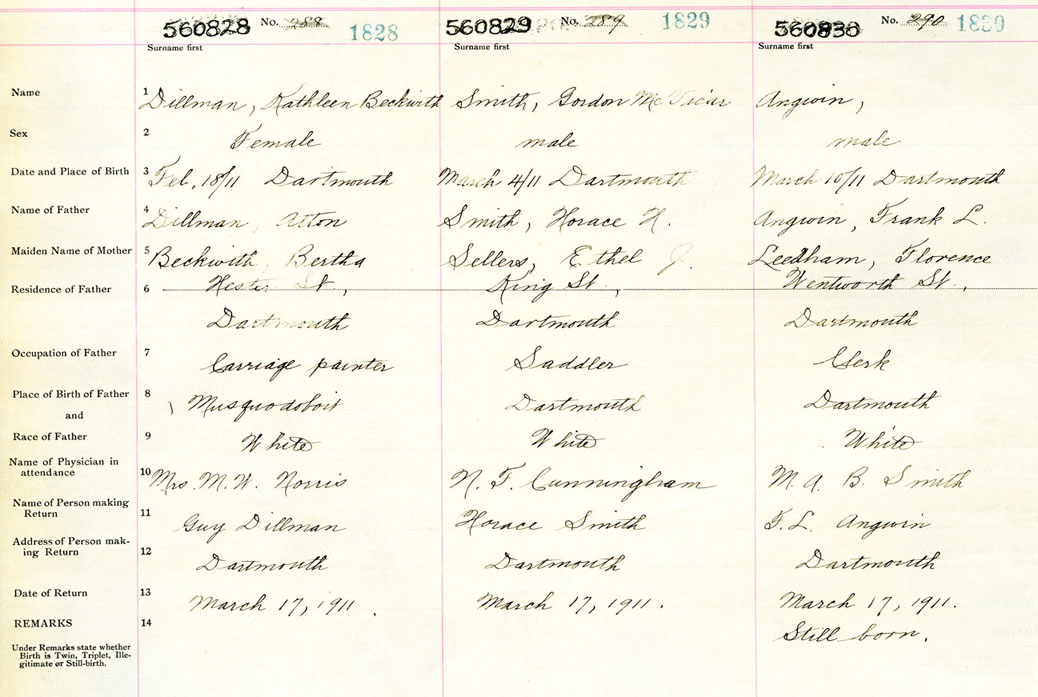 560828 No. 288 1828 560829 No. 289 1829 560830 No. 290 1830
Surname first Surname first Surname first
Name 1 Dillman, Kathleen Beckwith Smith, Gordon McVicar Angwin,
Sex 2 Female male male
Date and Place of Birth 3 Feb. 18/11 Dartmouth March 4/11 Dartmouth March 10/11 Dartmouth
Name of Father 4 Dillman, Smith, Horace H. Angwin, Frank L.
Maiden Name of Mother 5 Beckwith, Bertha Sellers, Ethel J. Leedham, Florence
Residence of Father 6 Hester St., King St., Wentworth St.,
Dartmouth Dartmouth Dartmouth
Occupation of Father 7 Carriage painter Saddler Clerk
Place of Birth of Father 8 Musquodoboit Dartmouth Dartmouth
and
Race of Father 9 White White White
Name of Physician in
attendance 10 Mrs. M. W. Norris N. F. Cunningham M. A. B. Smith
Name of Person making
Return 11 Guy Dillman Horace Smith F. L. Angwin
Address of Person mak-
ing Return 12 Dartmouth Dartmouth Dartmouth
Date of Return 13 March 17, 1911. March 17, 1911. March 17, 1911.
REMARKS 14 Still born.
Under Remarks state whether
Birth is Twin, Triplet, Ille-
gitimate or Still-birth.